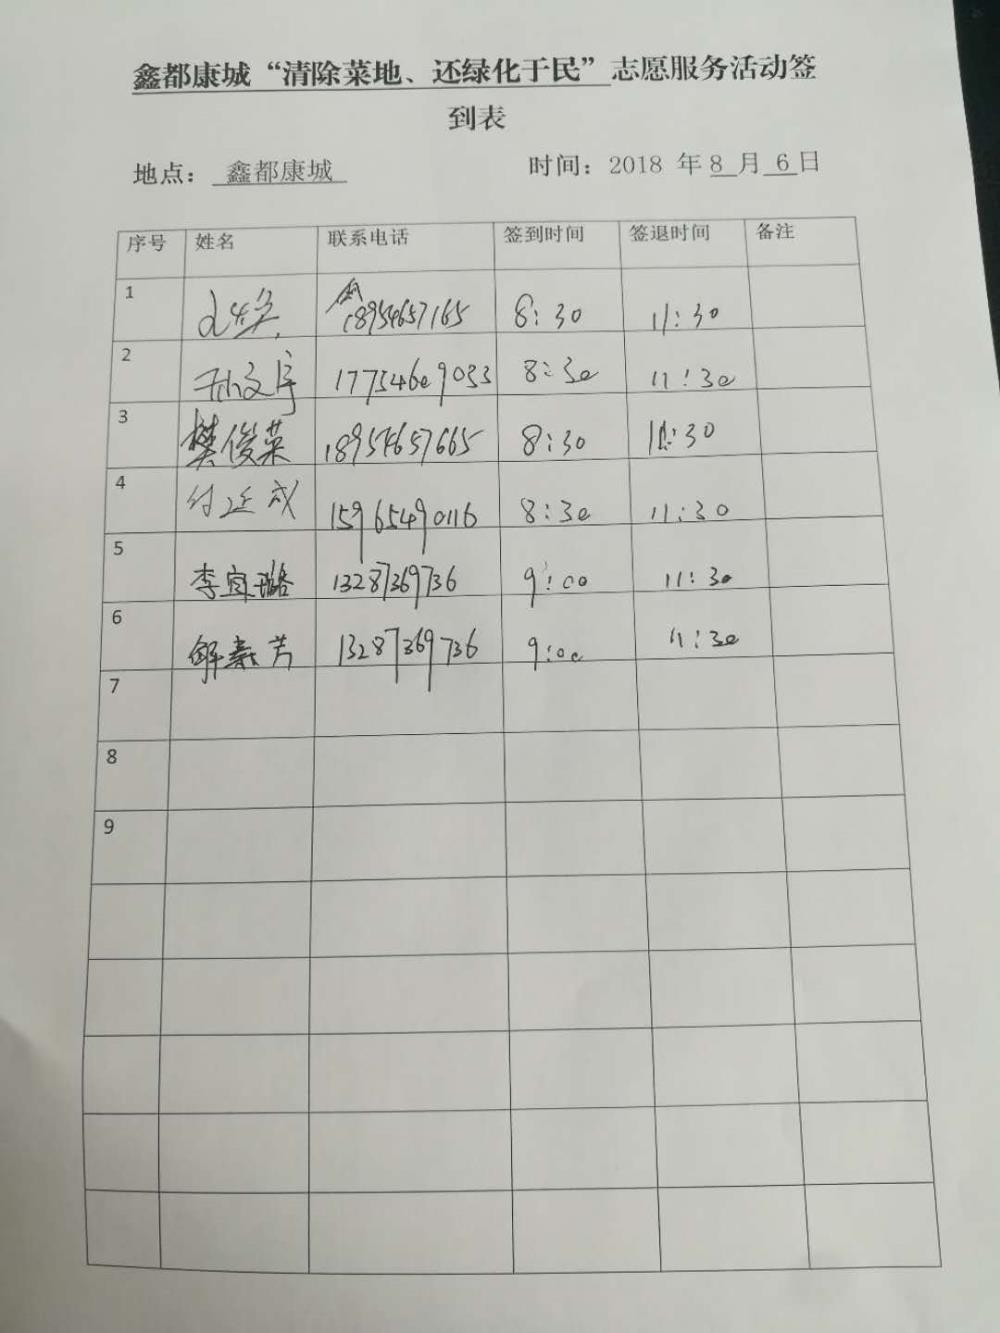 鑫都康城“清除菜地、还绿化于民”志愿服务活动签
到表
地点： 鑫都康城 时间：2018 年 8 月 6 日
序号 姓名 联系电话 签到时间 签退时间 备注
1 18954657165 8:30 11:30
2 孙文房 17754609033 8:30 11:30
3 樊俊菜 18954657665 8:30 11:30
4 付延成 15965490116 8:30 11:30
5 李宜璐 13287369736 9:00 11:30
6 解 芳 13287369736 9:00 11:30
7
8
9